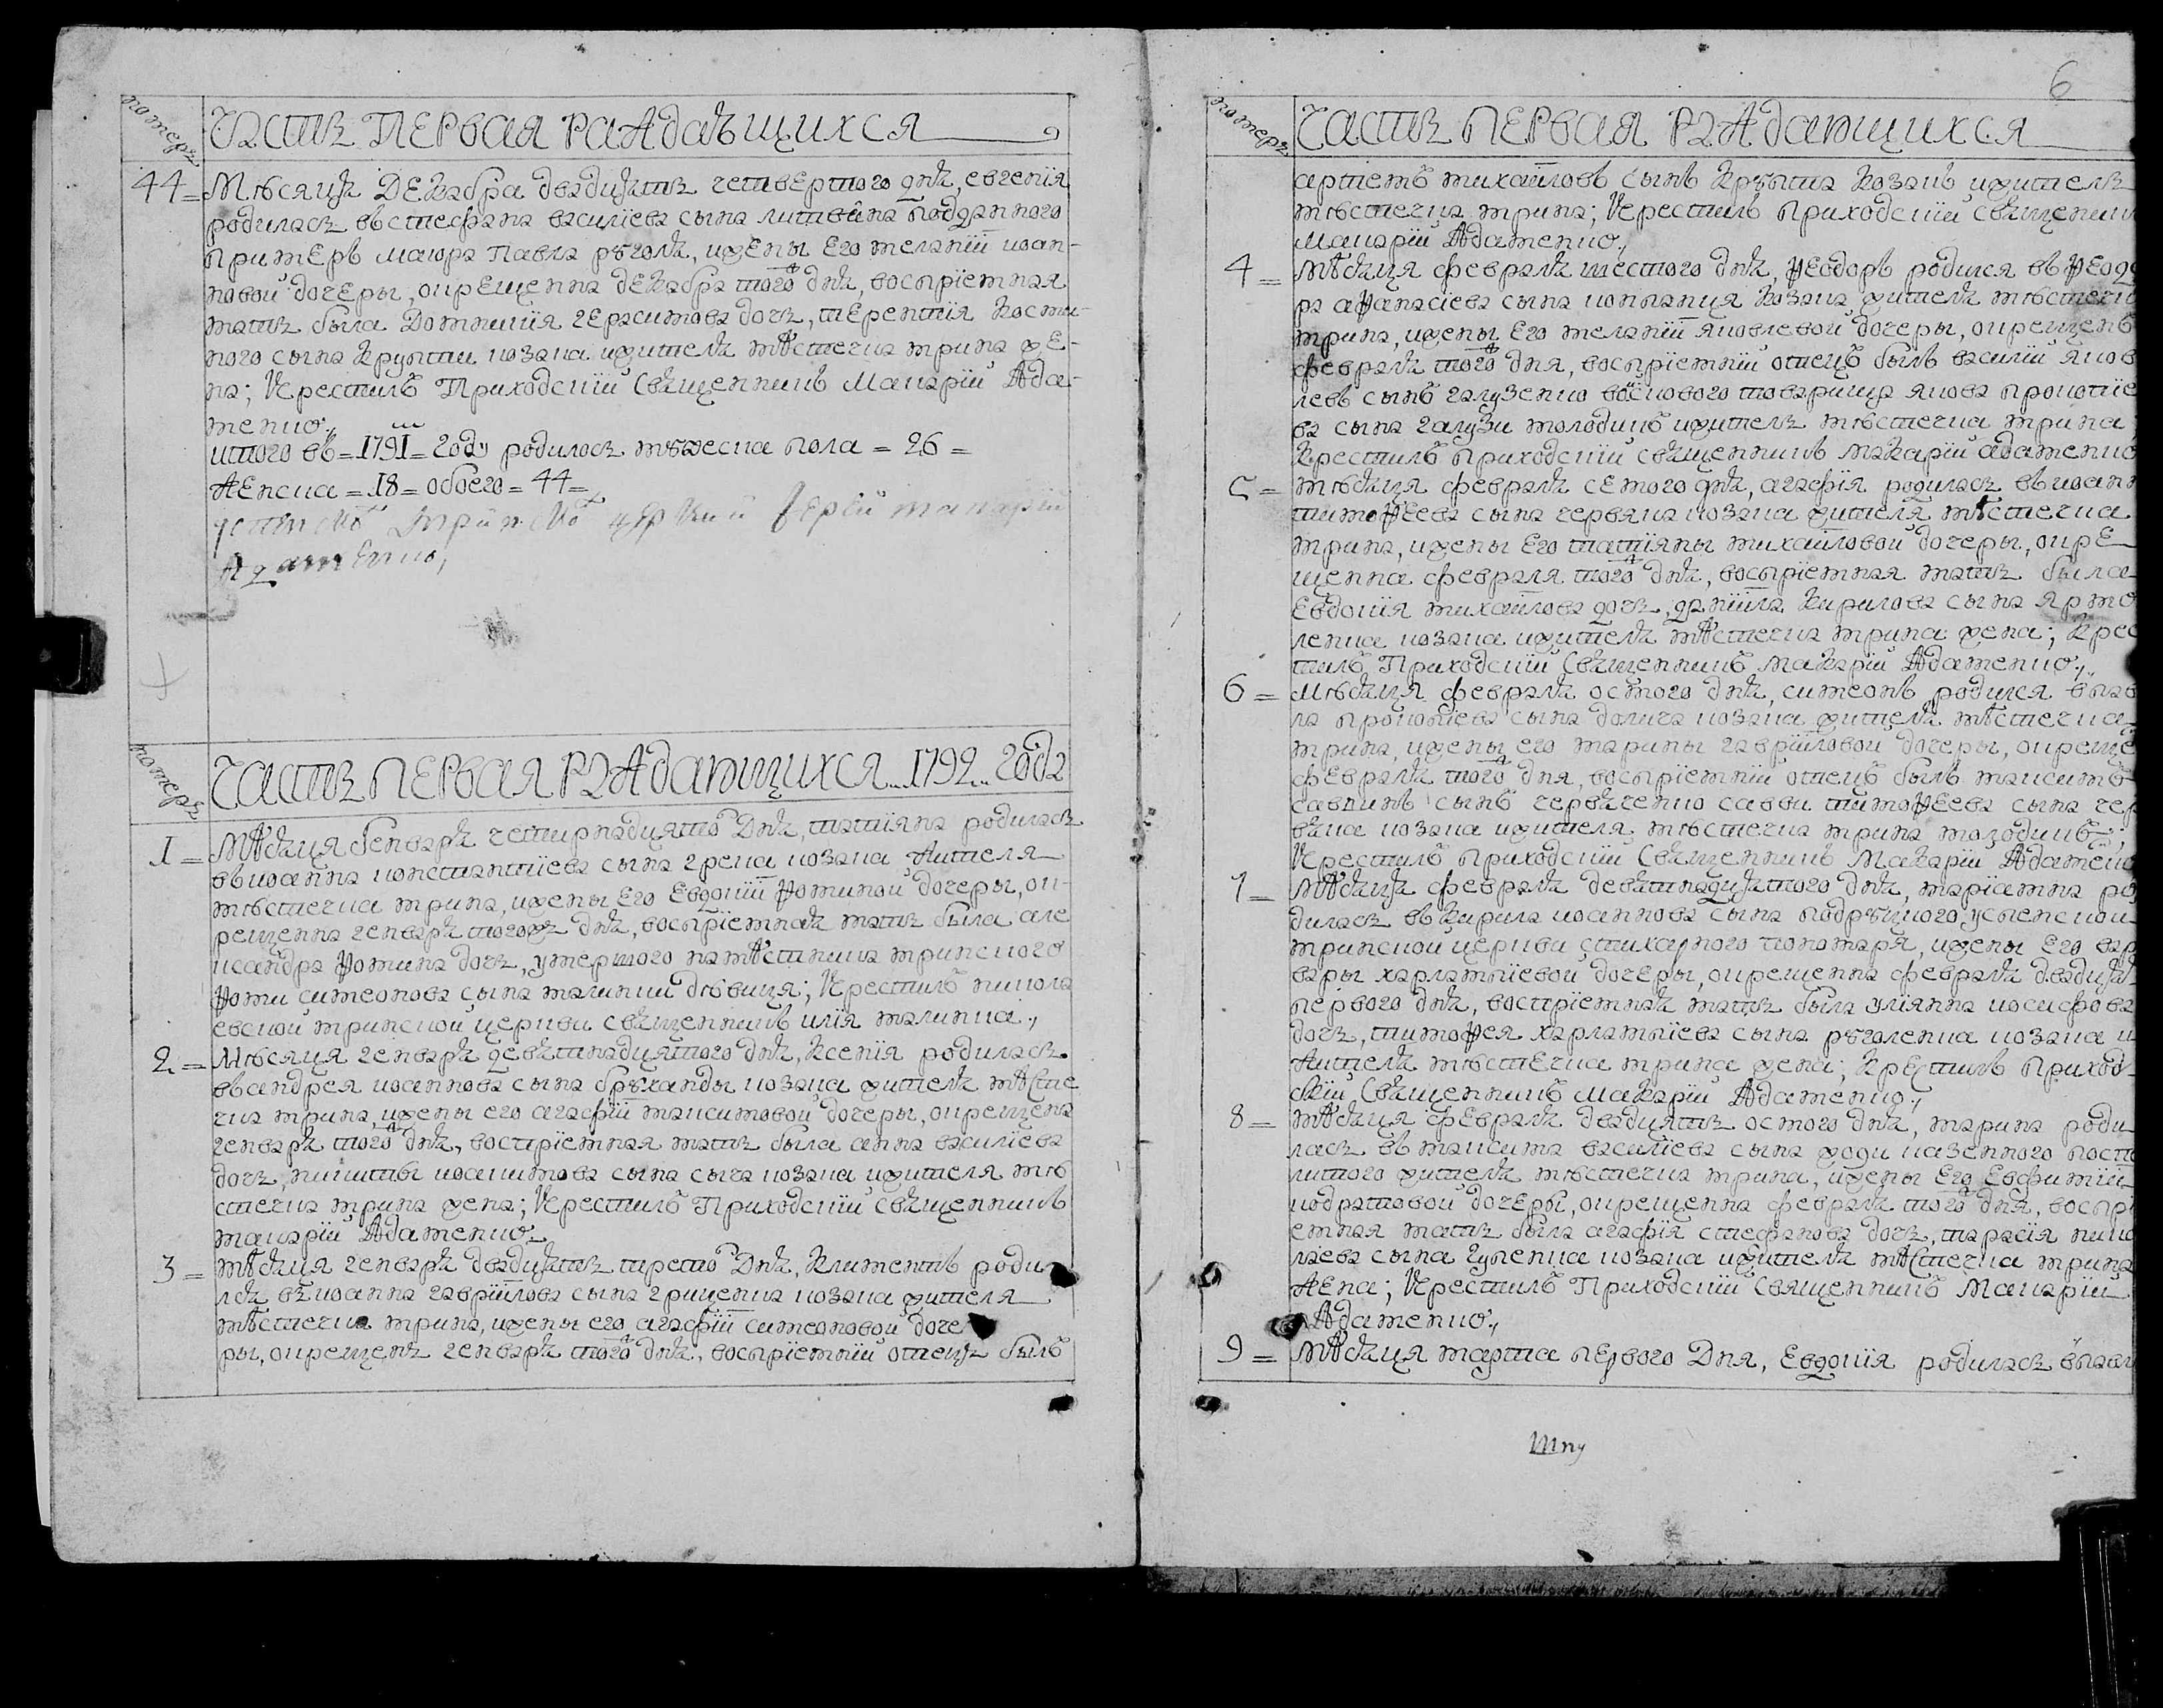 номеръ
Часть первая раждающихся
44 = Мѣсяця декабра двадцять четвертого дня, евгенія
родилась въ стефана василіева сына литвина подданного
примеръ маюра Павла рѣголя, ижены его меланіи иоан-
новой дочеры, окрещенна декабра того дня, воспріемная
мать была домникія герасимова дочь, терентія косми-
ного сына крупки козака ижителя мѣстечка ирина же-
на; Крестилъ Приходскій Священникъ Макарій Ада-
менко.
итого въ = 1791 = году родилось мѣжеска пола = 26 =
женска = 18 = обоего = 44 =
церкви іерей макарій
Адаменко,
номеръ
Часть первая раждающихся 1792 года
1 = Мѣсяця Генваря четирнадцято дня, татіяна родилась
въ иоанна константіева сына грека козака жителя
мѣстечка ирина, ижены его евдокіи ѳоминой дочеры, ок-
рещенна генваря тогожъ дня, воспріемная мать была але
ксандра ѳомина дочь, умершого намѣстника иринского
ѳоми симеонова сына малинки дѣвиця; Крестилъ никола
евской иринской церкви священникъ илія малинка.,
2 = Мѣсяця генваря девятнадцятого дня, ксенія родилась
въ андрея иоаннова сына брѣханды козака жителя мѣсте
чка ирина, ижены его агафіи максимовой дочеры, окрещена
генваря того дня, воспріемная мать была анна василіева
дочь, никиты иоакимова сына сыча козака ижителя мѣ
стечка ирина жена; Крестилъ Приходскій Священникъ
макарій Адаменко.
3 = Мѣсяця генваря двадцять трето дня, климентъ роди
лся въ иоанна гавріилова сына гриценка козака жителя
мѣстечка ирина, ижены его агафіи симеоновой доче
ры, окрещенъ генваря того дня, воспріемній отець былъ
6
номеръ
Часть первая раждающихся
артемъ михайловъ сынъ крѣпка козакъ ижитель
мѣстечка ирина; Крестилъ приходскій священник
макарій Адаменко.,
4 = Мѣсяця февраля шестого дня, ѳеодоръ родился въ ѳеодо
ра аѳанасіева сына козака жителя мѣстечк
ирина, ижены его меланіи яковлевой дочеры, окрещенъ
февраля того дня, воспріемній отецъ былъ василій яков
левъ сынъ галузенко войскового товарища якова прокопіе
ва сына галузи молодикъ ижитель мѣстечка ирина
крестилъ приходскій священникъ макарій адаменко
5 = Мѣсяця февраля семого дня, агафія родилась въ иоанн
тимоѳеева сына червяка козака жителя мѣстечка
ирина, ижены его татіяны михайловой дочеры, окре
щенна февраля того дня, воспріемная мать была
Евдокія михайлова дочь, даніила кирилова сына ярмо
ленка козака ижителя мѣстечка ирина жена; крес
тилъ Приходскій Священникъ макарій Адаменко.,
6 = Мѣсяця февраля осмого дня, симеонъ родился въ пав
ла прокопіева сына долича козака жителя мѣстечка
ирина, ижены его марины гавріиловой дочеры, окреще
февраля того дня, воспріемній отецъ былъ максимъ
саввинъ сынъ червяченко савви тимоѳеева сына чер
вяка козака ижителя мѣстечка ирина молодикъ;
Крестилъ приходскій Священникъ Макарій Адаменко
7 = Мѣсяця февраля девятнадцятого дня, маріамна ро
дилась въ кирила иоаннова сына подрѣцкого успенскои
иринской церкви стихарного пономаря, ижены его вар
вары харлампіевой дочеры, окрещенна февраля двадцят
первого дня, воспріемная мать была улиянна иосифова
дочь, тимоѳея харлампіева сына рѣголенка козака и
жителя мѣстечка ирина жена; крестилъ приход
скій Священникъ макарій Адаменко.,
8 = Мѣсяця февраля двадцять осмого дня, марина роди
лась въ максима василіева сына казенного посто
литого жителя мѣстечка ирина, ижены его Евфиміи
кодратовой дочеры, окрещенна февраля того дня, воспрі
емная мать была агафія стефанова дочь, тарасія нико
лаева сына гуленка козака ижителя мѣстечка ирина
жена; Крестилъ Приходскій Священникъ Макарій
Адаменко.,
9 = Мѣсяця марта первого Дня, Евдокія родилась въ пав